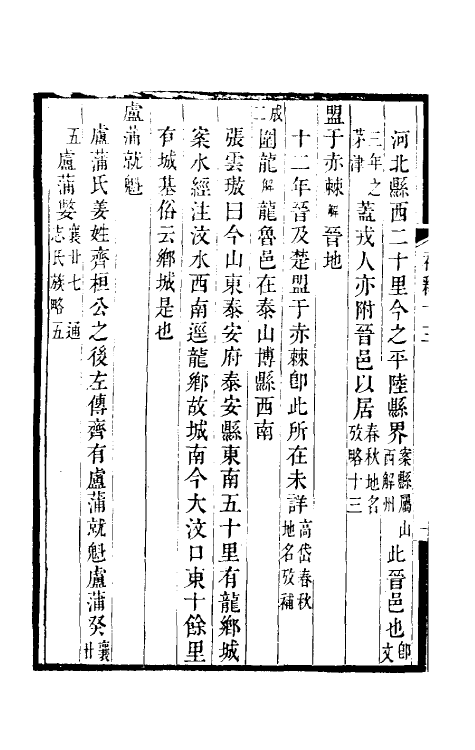 河北縣西二十里今之平陸縣界案縣屬山西解州此晉邑也即文
三年之茅津蓋戎人亦附晉邑以居春秋地名攷略十三
盟于赤棘解晉地
十二年晉及楚盟于赤棘即此所在未詳高岱春秋地名攷補
成二圍龍解龍魯邑在泰山博縣西南
張雲璈曰今山東泰安府泰安縣東南五十里有龍鄉城
案水經注汶水西南逕龍鄉故城南今大汶口東十餘里
有城基俗云鄉城是也
盧蒲就魁
盧蒲氏姜姓齊桓公之後左傳齊有盧蒲就魁盧蒲癸襄廿
五盧蒲嫳襄廿七通志氏族略五